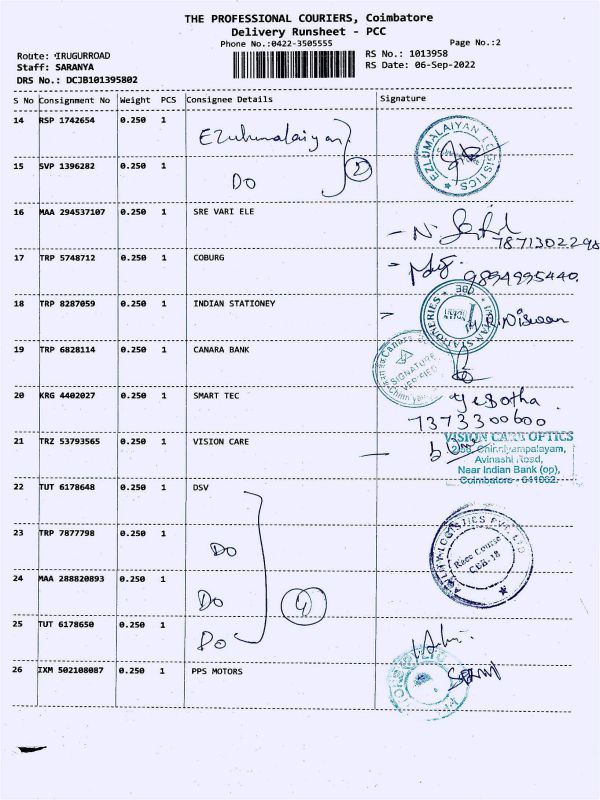 THE PROFESSIONAL COURIERS, Coimbatore
Delivery Runsheet - PCC
Phone No.:0422-3505555 Page No.:2
Route: IRUGURROAD RS No.: 1013958
Staff: SARANYA RS Date: 06-Sep-2022
DRS No.: DCJB101395802
S No Consignment No Weight PCS Consignee Details Signature
14 RSP 1742654 0.250 1 Ezuhumalaiyan
EZLUMALAIYAN LOGISTICS
15 SVP 1396282 0.250 1 Do 2
16 MAA 294537107 0.250 1 SRE VARI ELE
7871302298
17 TRP 5748712 0.250 1 COBURG
9894995440
18 TRP 8287059 0.250 1 INDIAN STATIONEY
INDIAN STATIONERIES
19 TRP 6828114 0.250 1 CANARA BANK
SIGNATURE
VERIFIED
20 KRG 4402027 0.250 1 SMART TEC
7373300600
21 TRZ 53793565 0.250 1 VISION CARE
VISION CARE OPTICS
Avinashi Road,
Near Indian Bank (op),
Coimbatore - 641062.
22 TUT 6178648 0.250 1 DSV
23 TRP 7877798 0.250 1 Do
AGILITY LOGISTICS PVT. LTD
Race Course
CBE-18
24 MAA 288820893 0.250 1 Do 4
25 TUT 6178650 0.250 1 Do
26 IXM 502108087 0.250 1 PPS MOTORS